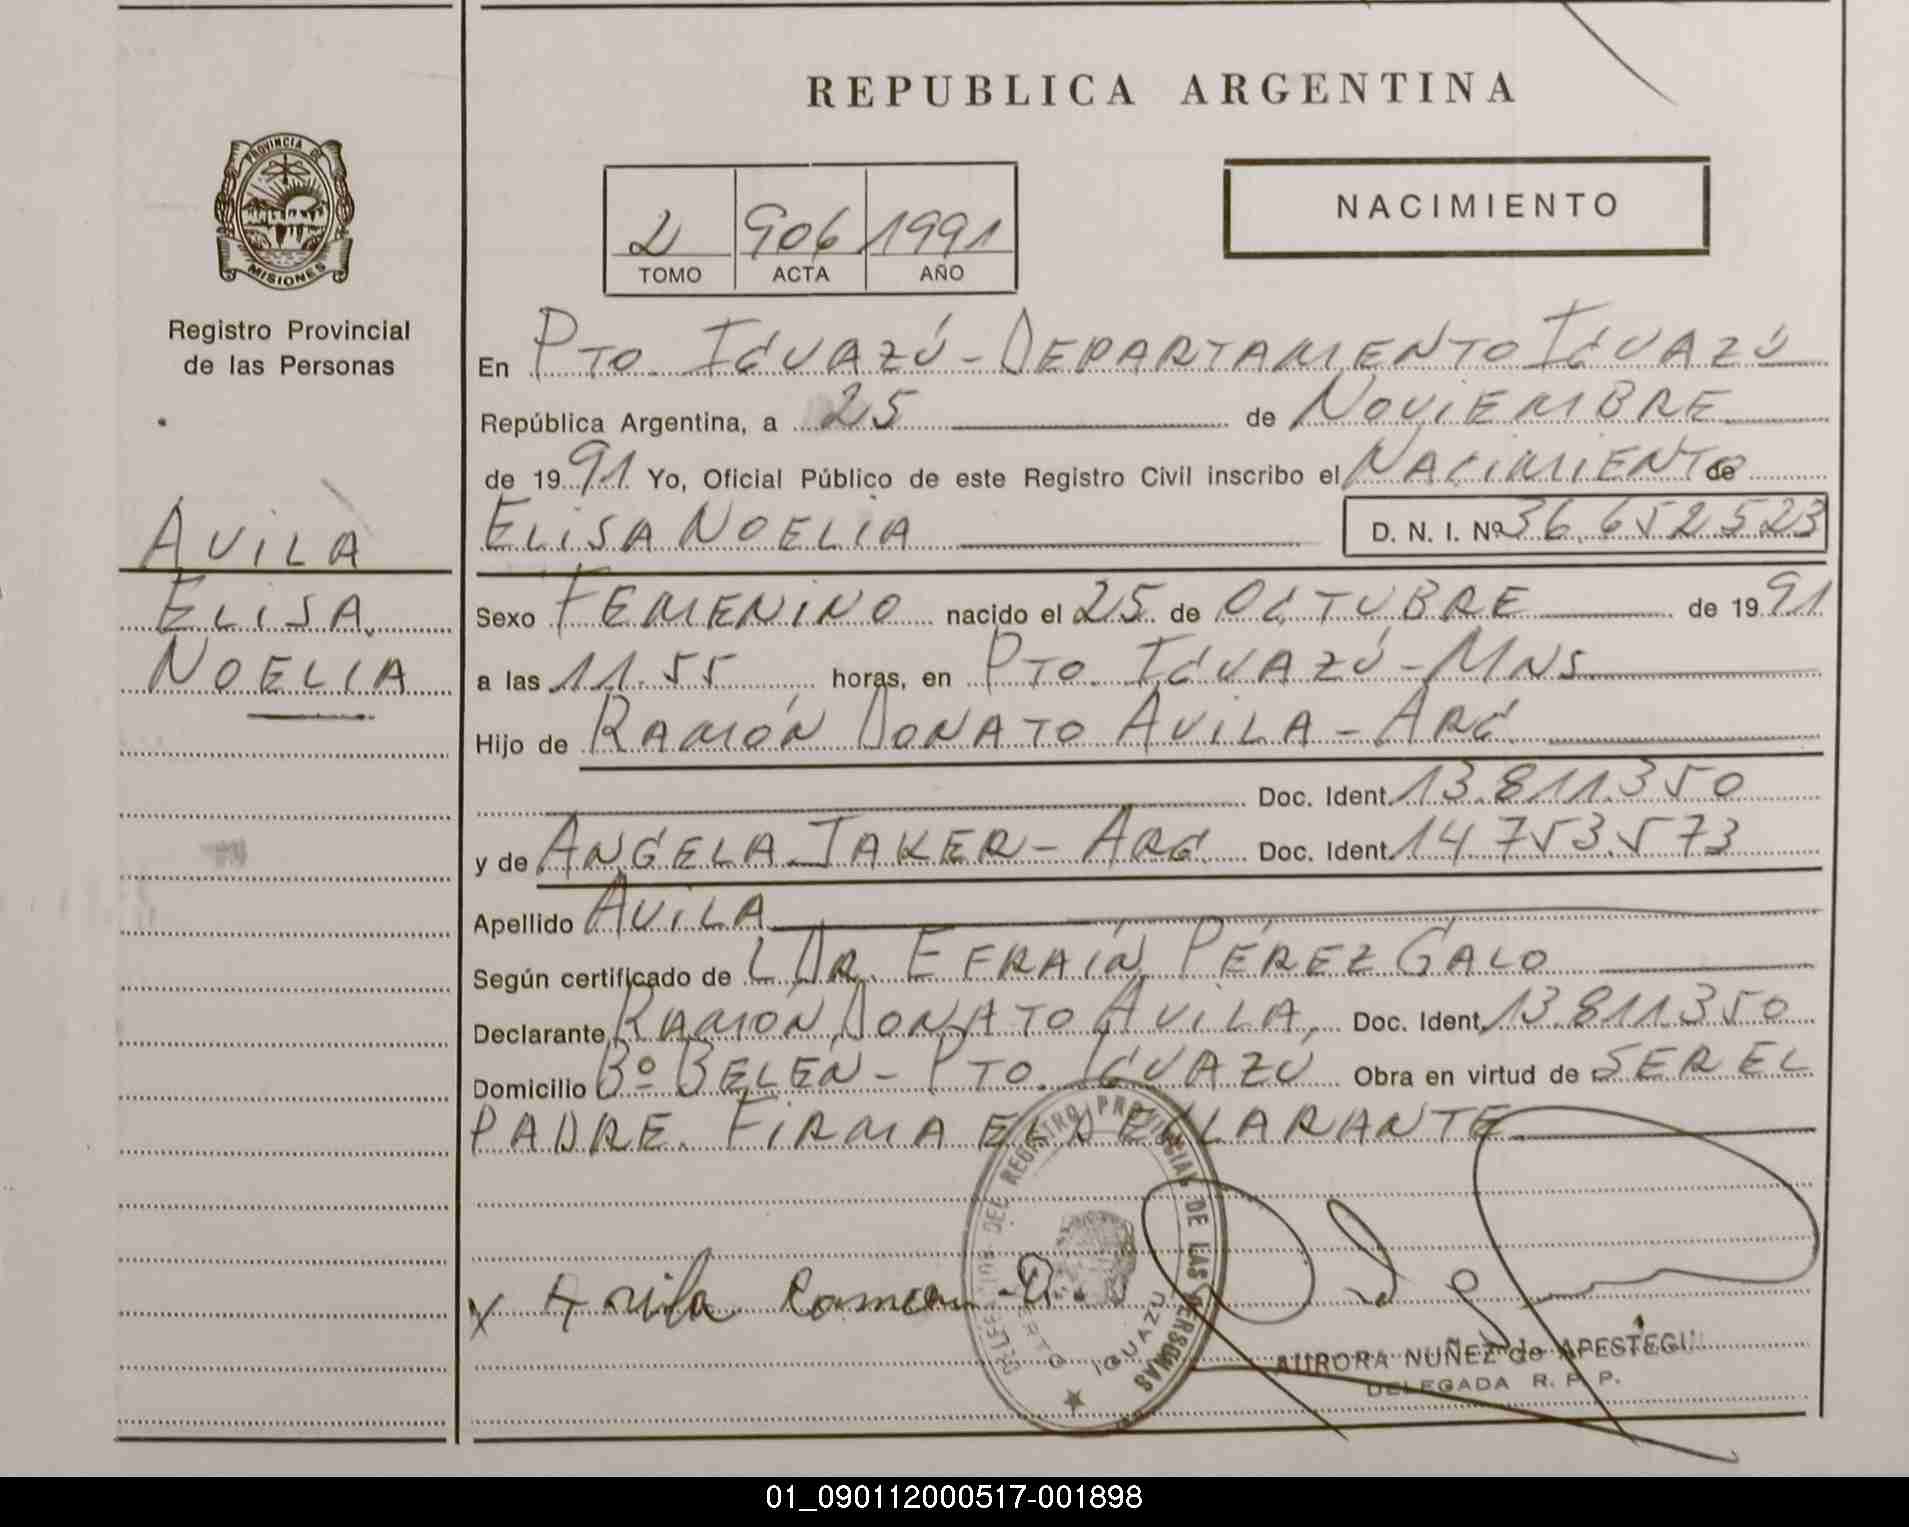 REPUBLICA ARGENTINA
PROVINCIA DE
MISIONES
Registro Provincial
de las Personas
2 906 1991
TOMO ACTA AÑO
NACIMIENTO
En PTO. IGUAZÚ - DEPARTAMENTO IGUAZÚ
República Argentina, a 25 de NOVIEMBRE
de 1991 Yo, Oficial Público de este Registro Civil inscribo el NACIMIENTO de
ELISA NOELIA D. N. I. Nº 36.652.523
AVILA
ELISA
NOELIA
Sexo FEMENINO nacido el 25 de OCTUBRE de 1991
a las 11.55 horas, en PTO. IGUAZÚ - MNS.
Hijo de RAMÓN DONATO AVILA - ARG.
Doc. Ident. 13.811.350
y de ANGELA JAKER - ARG. Doc. Ident. 14.753.573
Apellido AVILA
Según certificado de DR. EFRAÍN PÉREZ GALO
Declarante RAMÓN DONATO AVILA. Doc. Ident. 13.811.350
Domicilio Bº BELÉN - PTO. IGUAZÚ Obra en virtud de SER EL
PADRE. FIRMA EL DECLARANTE
DEL REGISTRO PROVINCIAL DE LAS PERSONAS
IGUAZU
x Avila Ramon D.
AURORA NUÑEZ de APESTEGUI
DELEGADA R. P. P.
01_090112000517-001898